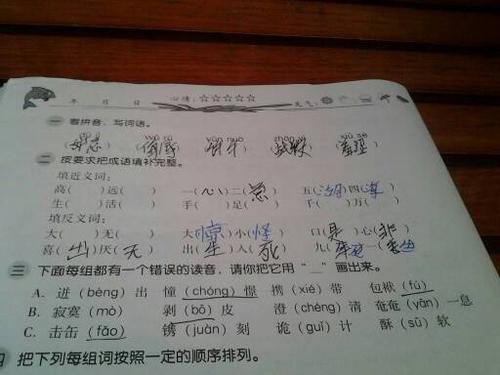 年 月 日 心情:☆☆☆☆☆ 天气:
一 看拼音,写词语。
二 按要求把成语填补完整。
填近义词:
高( )远( ) 一( )二( ) 五(湖)四(海)
生( )活( ) 手( )足( ) 千( )万( )
填反义词:
大( )无( ) 大(惊)小(怪) 口(是)心(非)
喜(出)厌(无) 出(生)入(死) 九( )一( )
三 下面每组都有一个错误的读音,请你把它用“__”画出来。
A. 迸(bèng)出 憧(chóng)憬 携(xié)带 包袱(fú)
B. 寂寞(mò) 剥(bō)皮 澄(chéng)清 奄奄(yān)一息
C. 击缶(fǎo) 镌(juàn)刻 诡(guǐ)计 酥(sū)软
四 把下列每组词按照一定的顺序排列。